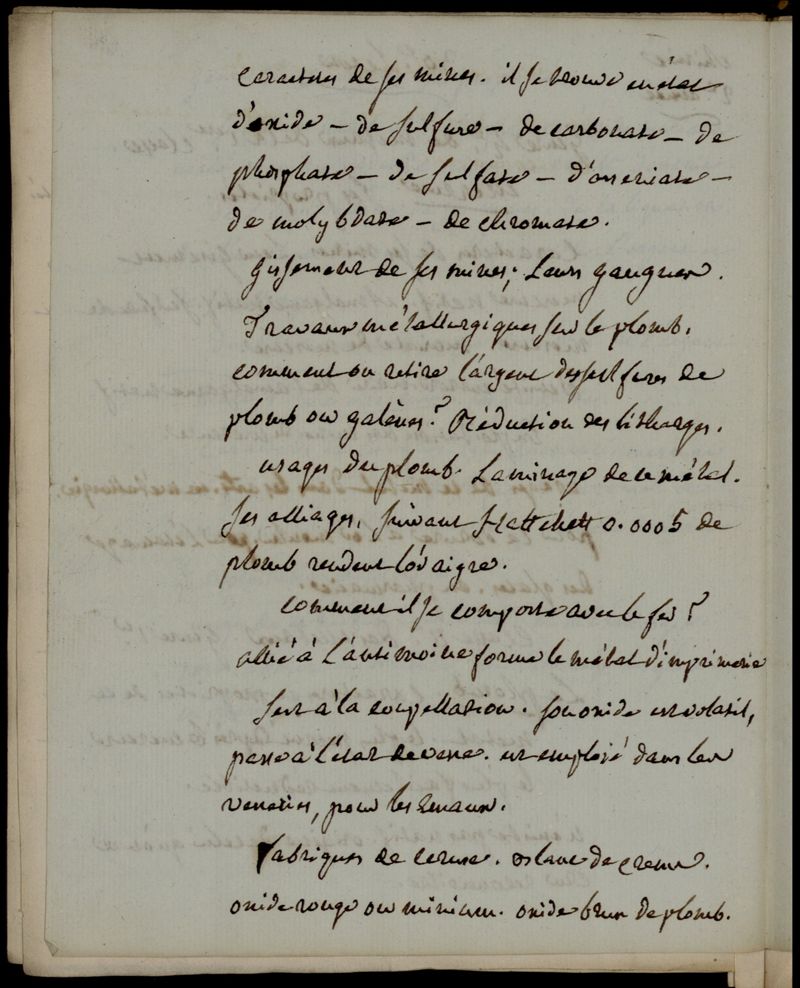 Caracteres de ses mines. il se trouve en état
d'oxide - de sulfure - de carbonate - de
phosphate - de sulfate - d'arseniate -
de molybdate - de chromate.
gissement de ses mines; Leurs gangues.
Travaux métallurgiques sur le plomb.
comment on retire l'argent des sulfures de
plomb ou galènes? Réduction des litharges.
usages du plomb. Laminage de ce métal.
ses alliages, suivant Hattchett 0.0005 de
plomb rendent l'or aigre.
comment il se comporte avec le fer?
allié à L'antimoine forme le métal d'imprimerie
sert à la coupellation. son oxide est volatil,
passe à l'état de verre. est employé dans les
verreries, pour les Emaux.
fabriques de ceruse. blanc de
oxide rouge ou minium. oxide brun de plomb.